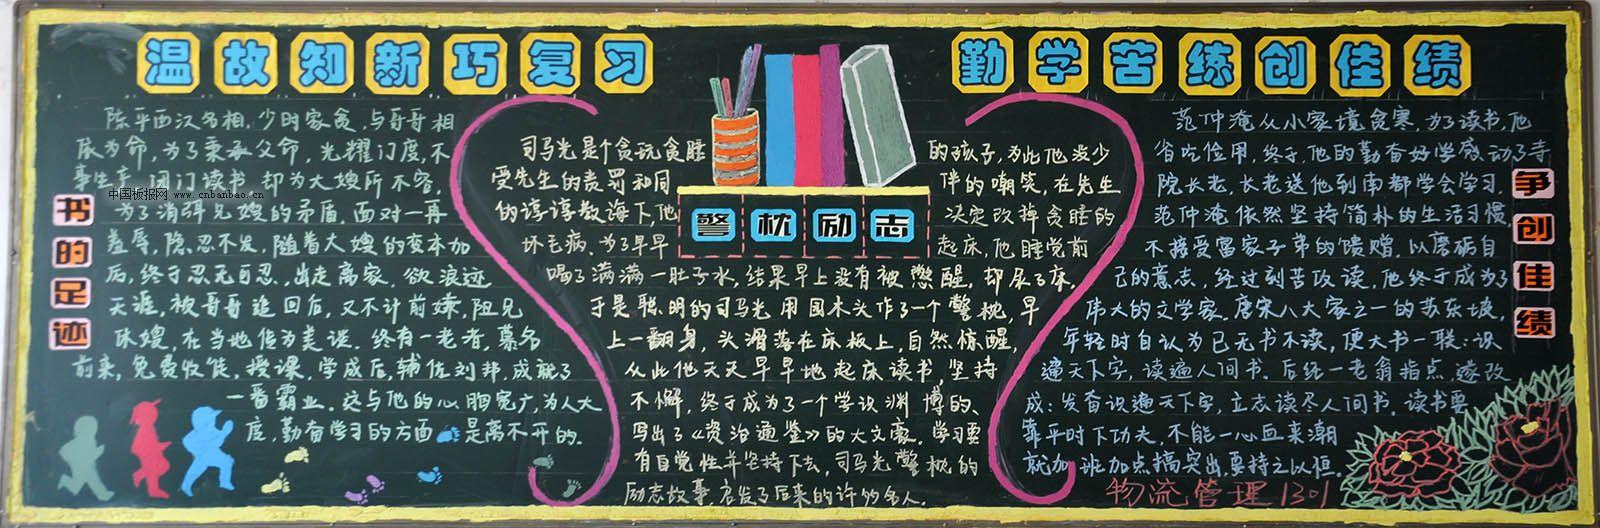 温故知新巧复习
勤学苦练创佳绩
书的足迹
陈平西汉名相,少时家贫,与哥哥相
依为命,为了秉承父命,光耀门庭,不
事生产,闭门读书,却为大嫂所不容,
中国板报网 www.cnbanbao.cn
为了消弭兄嫂的矛盾,面对一再
羞辱,隐忍不发,随着大嫂的变本加
后,终于忍无可忍,出走离家,欲浪迹
天涯,被哥哥追回后,又不计前嫌,阻兄
休嫂,在当地传为美谈.终有一老者,慕名
前来,免费收徒,授课,学成后,辅佐刘邦,成就了
一番霸业.这与他的心胸宽广,为人大
度,勤奋学习的方面是离不开的.
警枕励志
司马光是个贪玩贪睡的孩子,为此他没少
受先生的责罚和同伴的嘲笑,在先生
的谆谆教诲下,他决定改掉贪睡的
坏毛病.为了早早起床,他睡觉前
喝了满满一肚子水,结果早上没有被憋醒,却尿了床,
于是聪明的司马光用园木头作了一个警枕,早
上一翻身,头滑落在床板上,自然惊醒,
从此他天天早早地起床读书,坚持
不懈,终于成为了一个学识渊博的、
写出了《资治通鉴》的大文豪.学习要
有自觉性并坚持下去,司马光警枕的
励志故事,启发了后来的许多名人.
争创佳绩
范仲淹从小家境贫寒,为了读书,他
省吃俭用,终于,他的勤奋好学感动了寺
院长老,长老送他到南都学会学习.
范仲淹依然坚持简朴的生活习惯,
不接受富家子弟的馈赠,以磨砺自
己的意志,经过刻苦攻读,他终于成为了
伟大的文学家.唐宋八大家之一的苏东坡,
年轻时自认为已无书不读,便大书一联:识
遍天下字,读遍人间书.后经一老翁指点,遂改
成:发奋识遍天下字,立志读尽人间书.读书要
靠平时下功夫,不能一心血来潮
就加班加点搞突出,要持之以恒.
物流管理1301